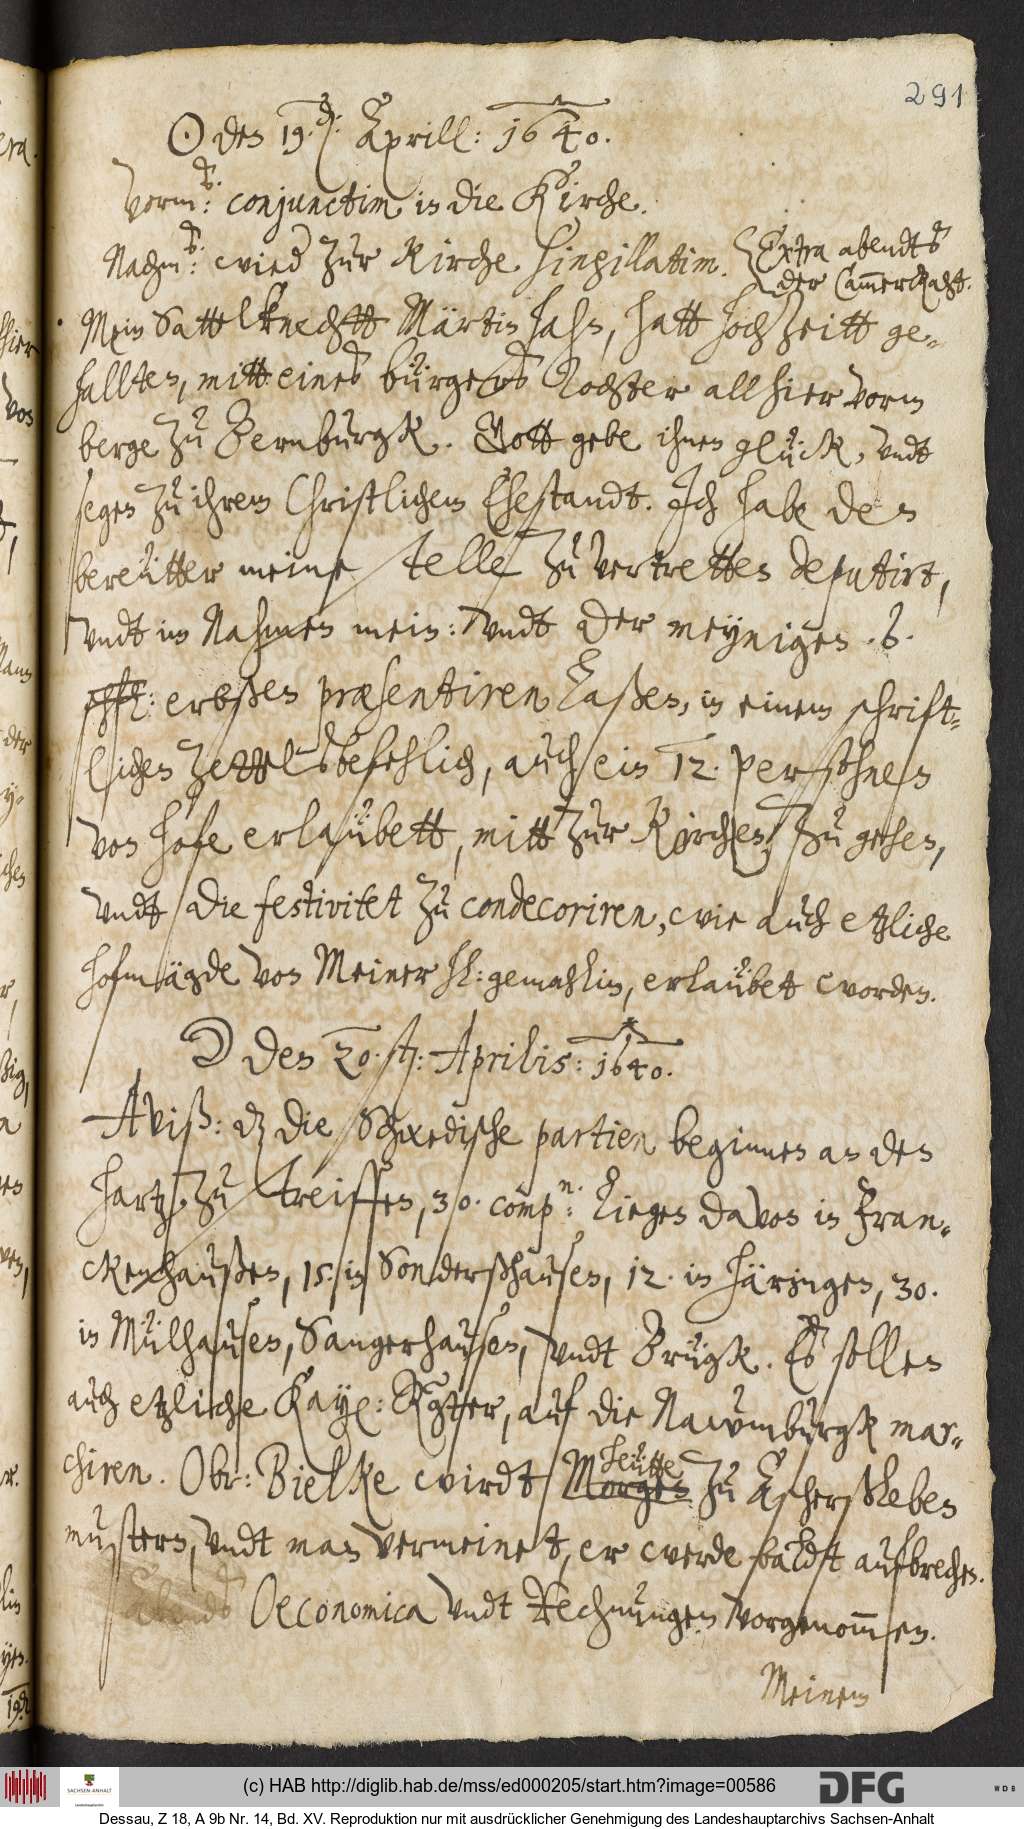 291
☉ den 19. Aprill: 1640.
Vorm: conjunctim in die Kirche.
Nachm: wied zur Kirche singillatim. Extra abendts
der CammerRaht.
Mein Sattelknechtt Märtin Hahn, hatt hochzeitt ge-
hallten, mitt eines bürgers Tochter allhier vorm
berge zu Bernburgk. Gott gebe ihnen glück, vndt
segen zu ihrem Christlichem Ehestandt. Jch habe den
bereütter meine stelle zu vertretten deputirt,
vndt im Nahmen mein: vndt der meynigen .6.
{Schfl:} erbßen præsentiren laßen, in einem schrift-
lichen zettel befehlich, auch ein 12. persohnen
von hofe erlaübett, mitt zur Kirchen, zu gehen,
vndt die festivitet zu condecoriren, wie auch etzliche
hofmägde von Meiner hl: gemahlin, erlaübet worden.
☽ den 20. Aprilis: 1640.
Aviß: dz die Schwedische partien beginnen an den
Hartz, zu streiffen, 30. comp.n: liegen davon in Fran-
ckenhaußen, 15. in Sonderßhausen, 12. in Häringen, 30.
in Mülhausen, Sangerhausen, vndt Brügk. Es sollen
auch etzliche Kay: Rgtter, auf die Nawmburgk mar-
chiren. Obr: Bielke wirdt Morgen heütte zu Ascherßleben
mustern, vndt man vermeinet, er werde baldt aufbrechen.
Abends Oeconomica vndt Rechnungen vorgenommen.
Meinem
(c) HAB http://diglib.hab.de/mss/ed000205/start.htm?image=00586
SACHSEN-ANHALT
Landeshauptarchiv
DFG
WDB
Dessau, Z 18, A 9b Nr. 14, Bd. XV. Reproduktion nur mit ausdrücklicher Genehmigung des Landeshauptarchivs Sachsen-Anhalt